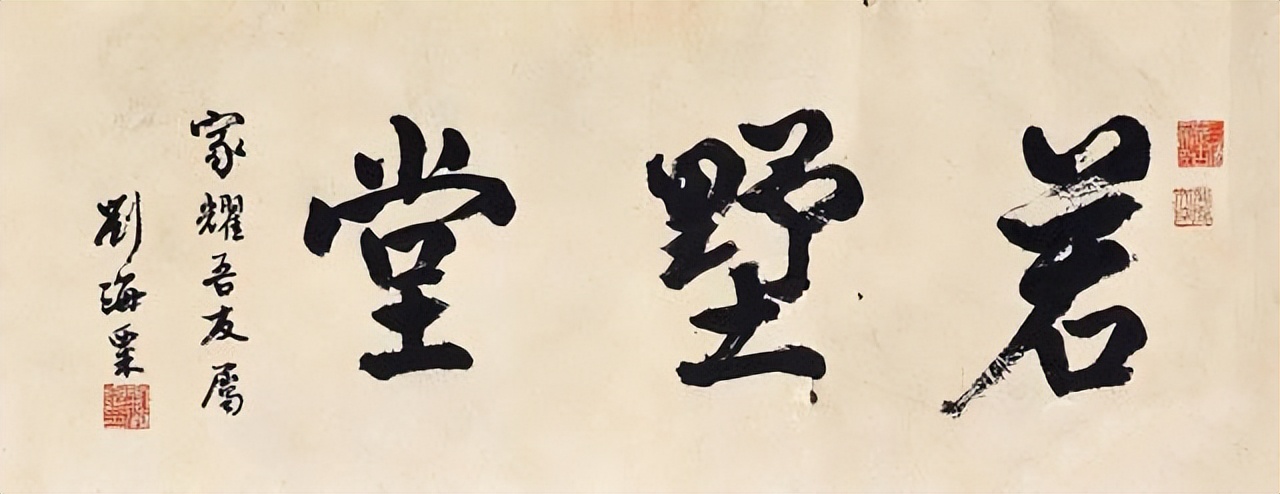 若墅堂
家耀吾友属
劉海粟